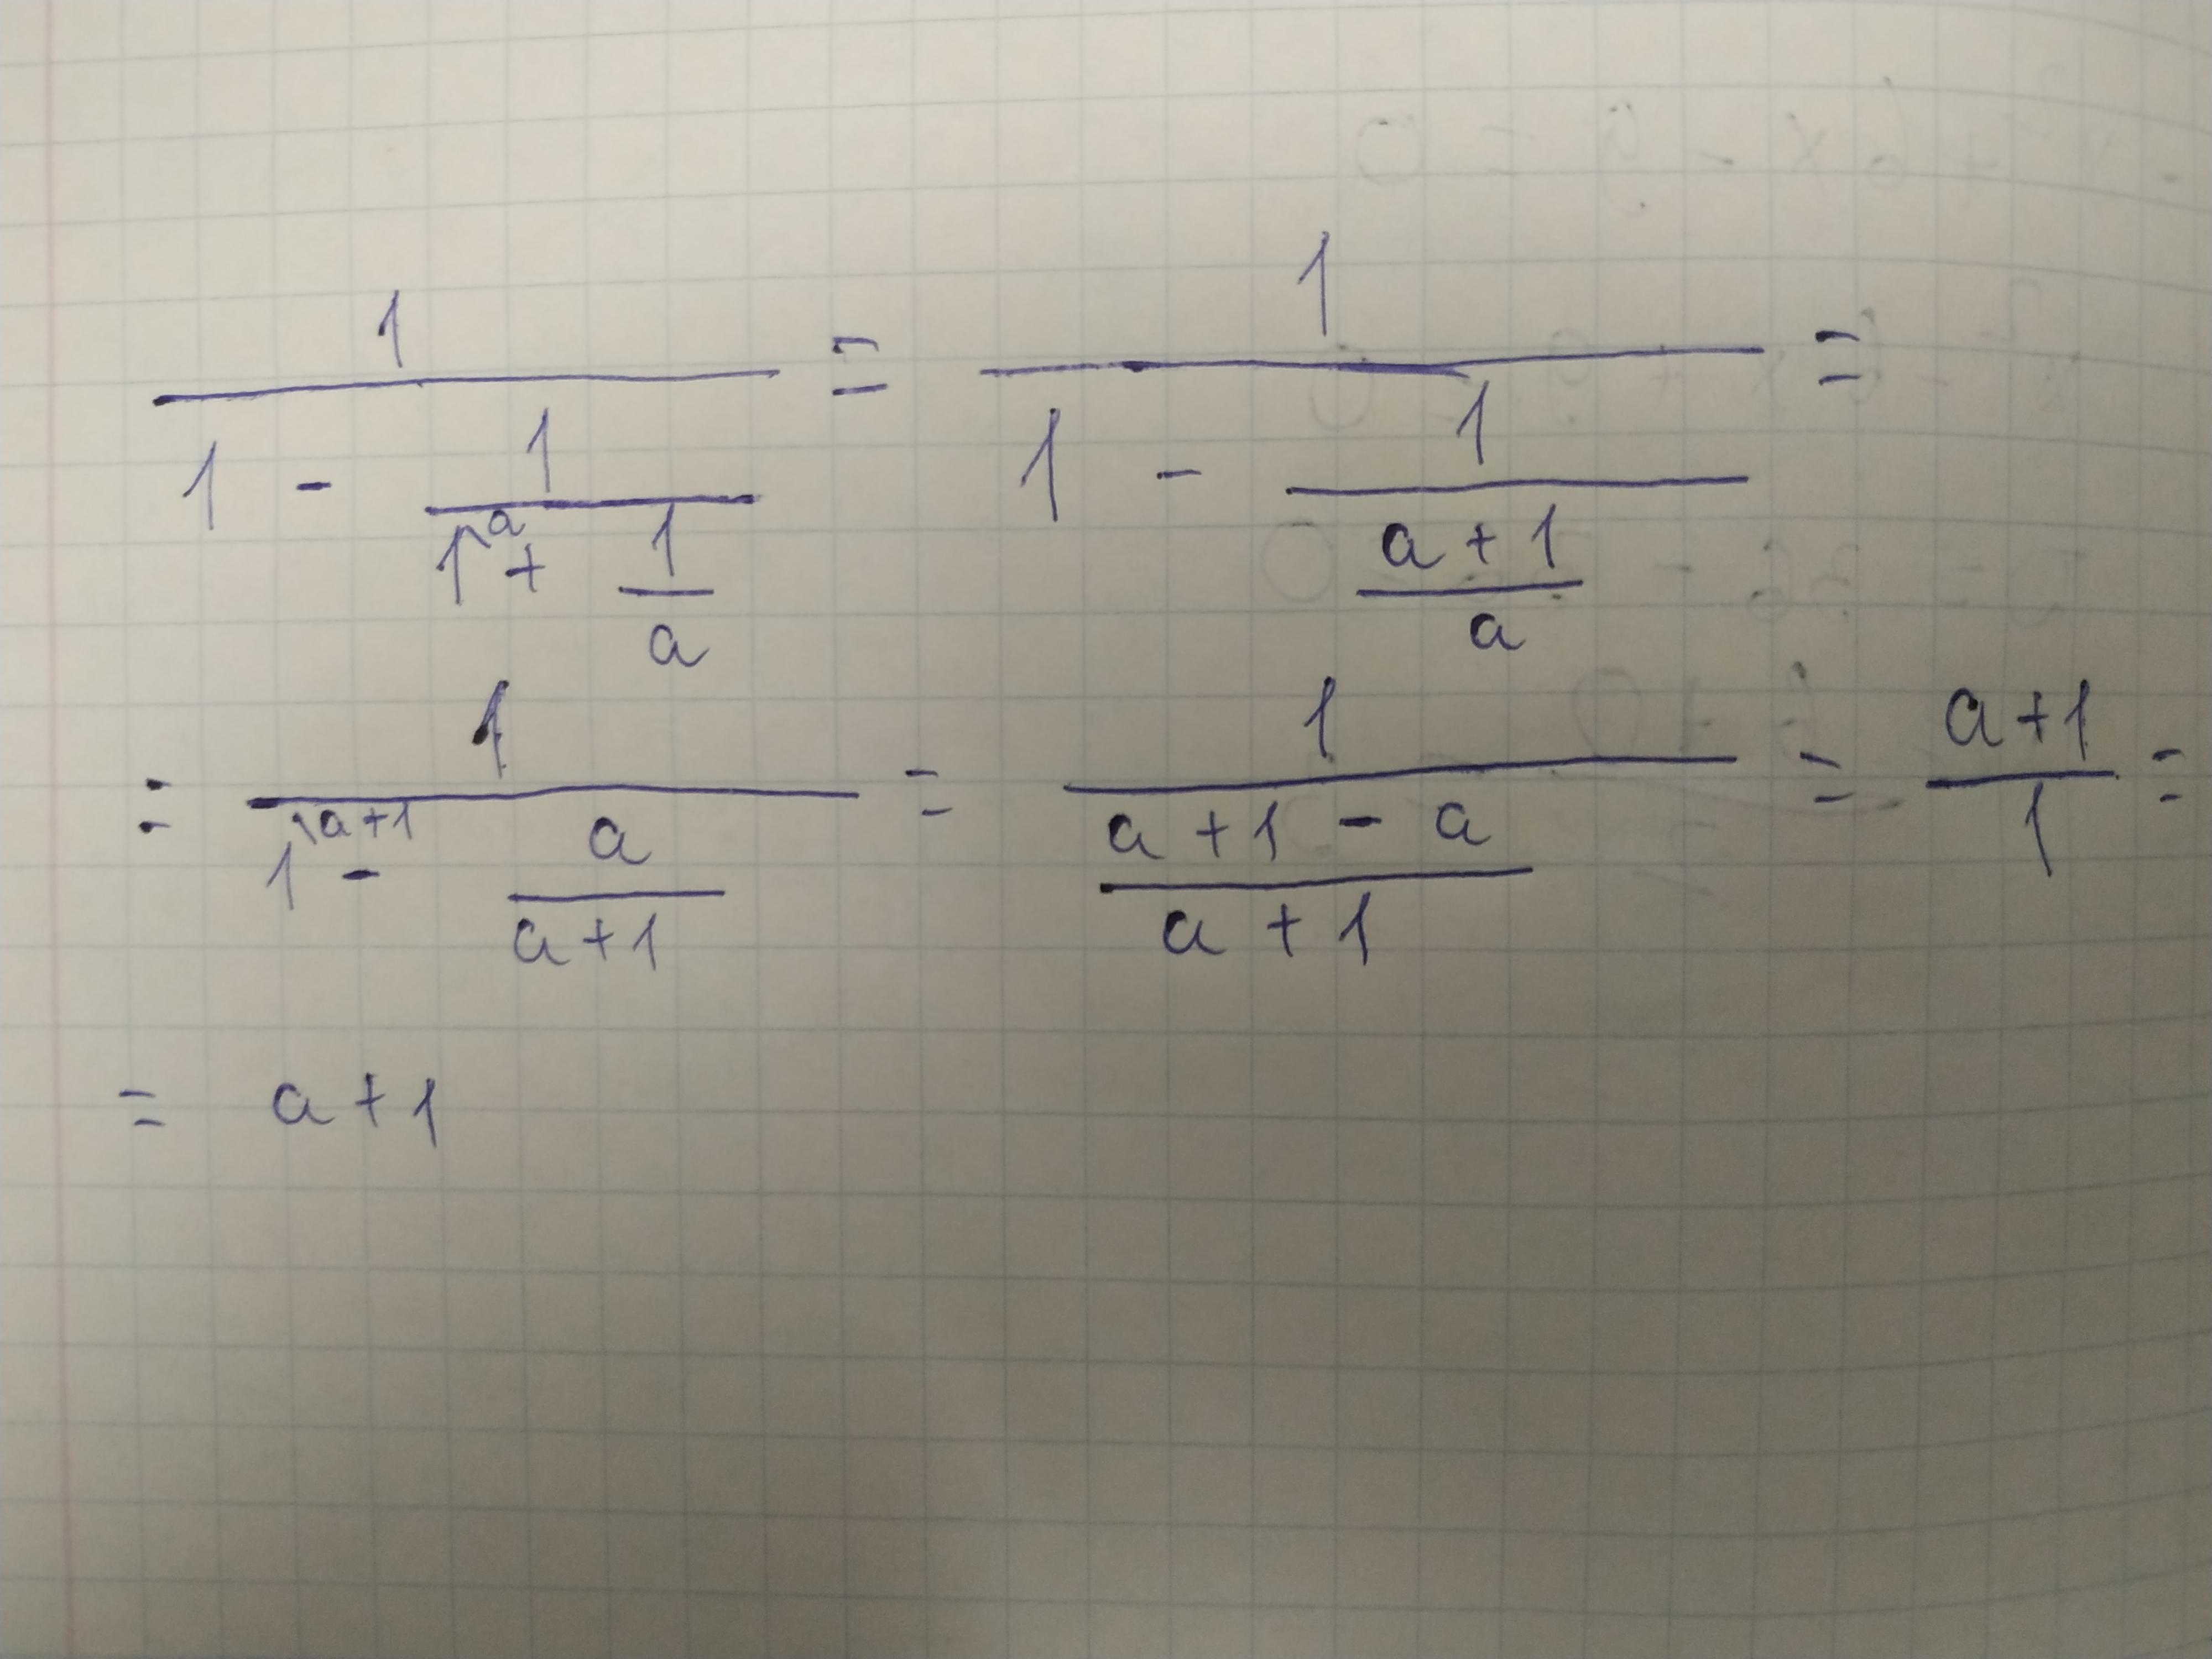 1/(1 - 1/(1^a + 1/a)) = 1/(1 - 1/((a+1)/a)) =
= 1/(1^(a+1) - a/(a+1)) = 1/((a+1-a)/(a+1)) = (a+1)/1 =
= a+1